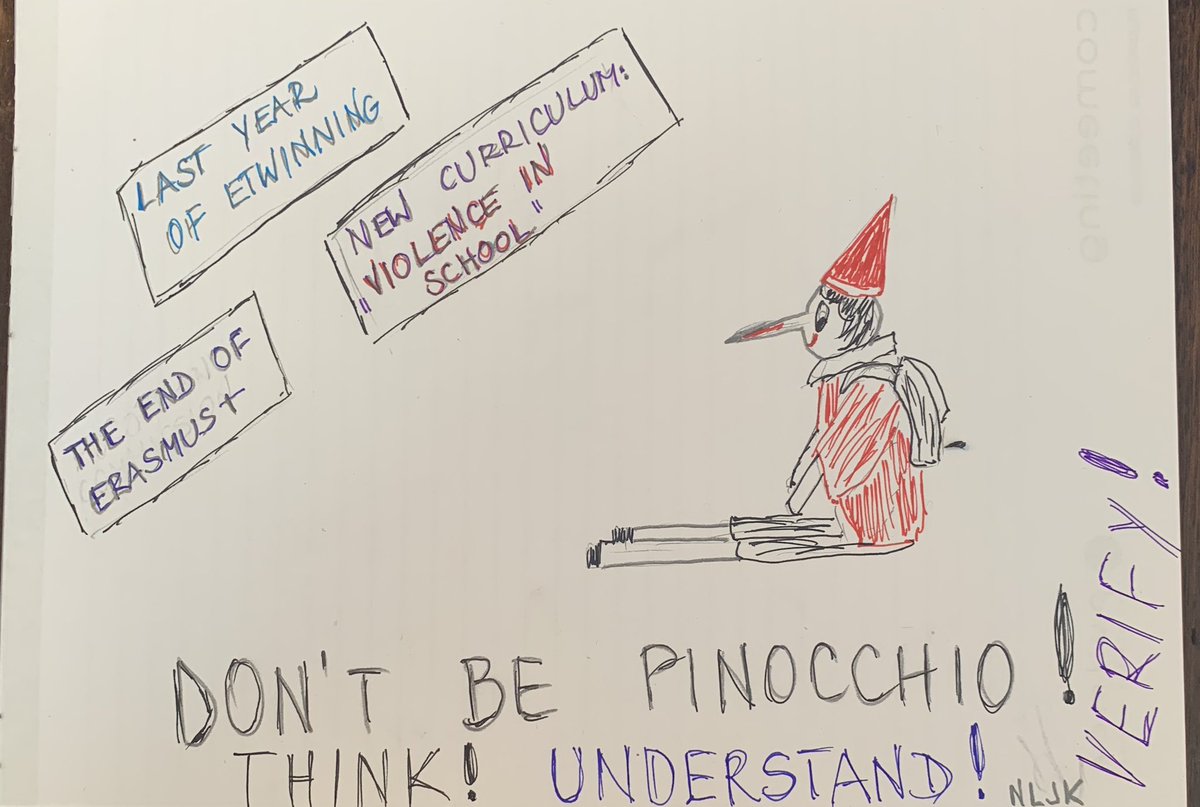 LAST YEAR
OF ETWINNING
NEW CURRICULUM:
"VIOLENCE IN
SCHOOL"
THE END OF
ERASMUS+
DON'T BE PINOCCHIO!
THINK! UNDERSTAND!
VERIFY!
NLJK
comeeting